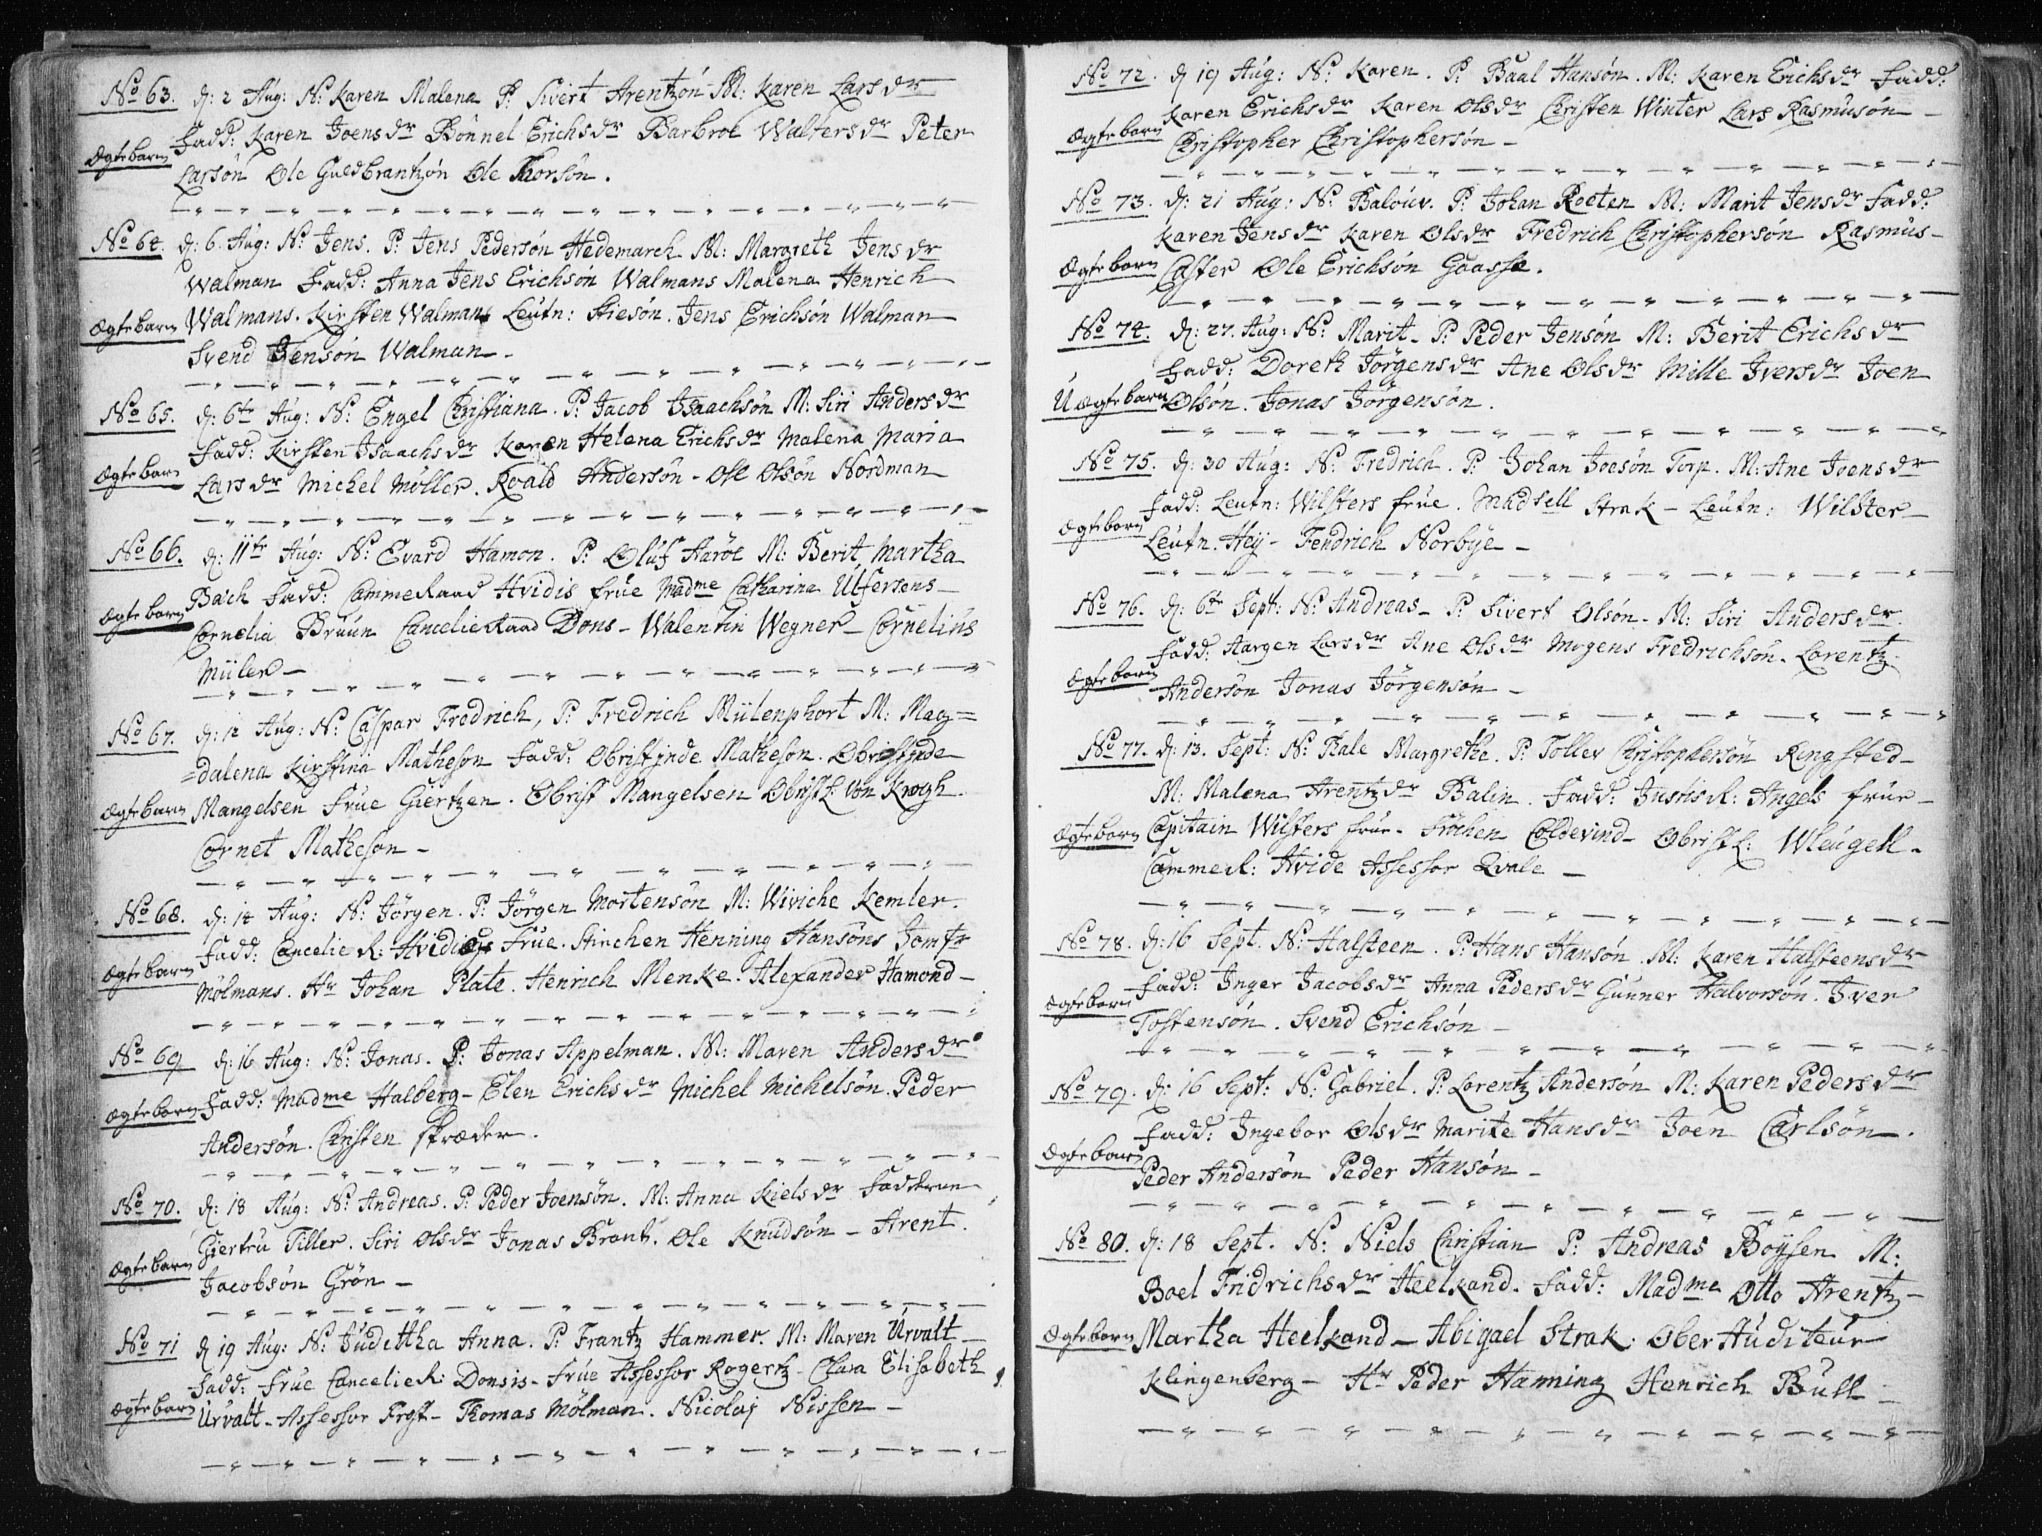 No 63. d: 2 Aug: N: Karen Malena P: Sivert Arentzón M: Karen Lars dr
Fadd: Karen Joens dr Bónnel Erichs dr Barbroe Walters dr Peter
Ægte barn
Larsón Ole Guldbrantzón Ole Thorsón.
No 64. d: 6. Aug: N: Jens. P: Jens Pedersón Hedemarch M: Margreth Jens dr
Walman Fadd: Anna Jens Erichsón Walmans Malena Henrich
Ægte barn Walmans. Kirsten Walmans Leutn: Stiesón. Jens Erichsón Walman
Svend Jensón Walman -
No 65. d: 6te Aug: N: Engel Christiana. P: Jacob Isaachsón M: Siri Anders dr
Fadd: Kirsten Isaachs dr Karen Helena Erichs dr Malena Maria
Ægte barn Lars dr Michel Móller. Roald Andersón - Ole Olsón Nordman
No 66. d: 11te Aug: N: Evard Hamon. P: Oluf Haróe M: Berit Martha
Bach Fadd: CammeRaad Hvidis frue Madme Catharina Ulfersens
Ægte barn Cornelia Bruun CancelieRaad Dons - Walentin Wegner - Cornelius
Müler -
No 67. d: 12 Aug: N: Caspar Fredrich, P: Fredrich Mülenphort M: Mag=
=dalena Kirstina Matheson Fadd: Obristinde Matheson. Obristinde
Ægte barn Mangelsen Frue Giertzen. Obrist Mangelsen Obristl: von Krogh.
Cornet Matheson -
No 68. d: 14 Aug: N: Jórgen. P: Jórgen Mortensón M: Wiviche Kemler.
Fadd: Cancelie R: Hvidies Frue. Stinchen Henning Hansóns Jomfr
Ægte barn Mólmans. Hr Johan Plate. Henrich Menke. Alexander Hamond -
No 69 d: 16 Aug: N: Jonas. P: Jonas Appelman. M: Maren Anders dr
Ægte barn Fadd: Madme Halberg - Elen Erichs dr Michel Michelsón. Peder
Andersón. Christen skræder.
No 70. d: 18 Aug: N: Andreas. P: Peder Joensón. M: Anna Kiels dr Fadderne
Giertru Tiller. Siri Ols dr Jonas Brant. Ole Knudsón - Arent.
Ægte barn
Jacobsón Grón -
No 71 d 19 Aug: N: Judittha Anna. P: Frantz Hammer. M: Maren Urvalt -
Fadd: Frue Cancelie R: Donsis - Frue Assessor Rogertz - Clara Elisabeth
Ægte barn Urvalt - Assessor Frost - Thomas Mólman. Nicolaj Nissen -
No 72. d 19 Aug: N: Karen. P: Baal Hansón. M: Karen Erichs dr Fadd:
Karen Erichs dr Karen Ols dr Christen Winter Lars Rasmusón -
Ægte barn
Christopher Christophersón -
No 73. d: 21 Aug: N: Balouv. P: Johan Roeten M: Marit Jens dr Fadd:
Karen Jens dr Karen Ols dr Fredrich Christophersón Rasmus -
Ægte barn Casper Ole Erichsón Gaasse.
No 74. d: 27. Aug: N: Marit - P: Peder Jensón M: Berit Erichs dr
Fadd: Doreth Jórgens dr Ane Ols dr Mille Ivers dr Joen
Uægte barn Olsón. Jonas Jórgensón.
No 75. d: 30 Aug: N: Fredrich. P: Johan Joesón Torp. M: Ane Joens dr
Fadd: Leutn: Wilsters frue. Madsell Strak - Leutn: Wilster -
Ægte barn
Leutn. Hey - Fendrich Norbye -
No 76. d: 6te Sept: N: Andreas - P: Sivert Olsón - M: Siri Anders dr
Fadd: Hargen Lars dr Ane Ols dr Mogens Fredrichsón. Lorentz
Ægte barn
Andersón Jonas Jórgensón -
No 77. d: 13. Sept: N: Thale Margrethe. P: Tollev Christophersón Ringsted -
M: Malena Arentz dr Balin. Fadd: Justis R: Angels frue -
Ægte barn Capitain Wilsters frue - Fróchen Coldevind - Obristl: Wleugell.
Camme R: Hvide Assessor Qvale -
No 78. d: 16 Sept: N: Halsteen. P: Hans Hansón. M: Karen Halsteens dr
Fadd: Inger Jacobs dr Anna Peders dr Gunner Halvorsón. Iver
Ægte barn
Tostensón. Svend Erichsón -
No 79. d: 16 Sept: N: Gabriel. P: Lorentz Andersón M: Karen Peders dr
Fadd: Ingebor Ols dr Marite Hans dr Joen Carlsón.
Ægte barn
Peder Andersón Peder Hansón -
No 80. d: 18 Sept. N: Niels Christian P: Andreas Boysen M:
Boel Fridrichs dr Heelkand. Fadd: Madme Otto Arentz -
Ægte barn Martha Heelkand - Abigael Strak. Ober Auditeur
Klingenberg - Hr Peder Hanning Henrich Bull -